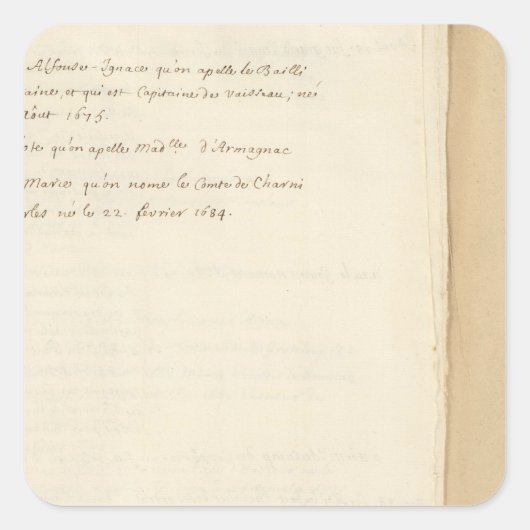 Alfonse-Ignace qu'on apelle le Bailli
aine, et qui est Capitaine de vaisseau; né
Aôut 1675.
te qu'on apelle Mad.lle d'Armagnac
Marie qu'on nome le Comte de Charni
rles né le 22. fevrier 1684.